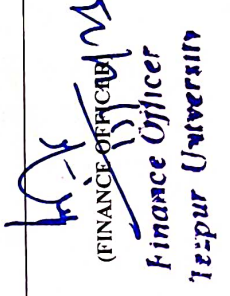 (FINANCE OFFICER)
Finance Officer
Tezpur University